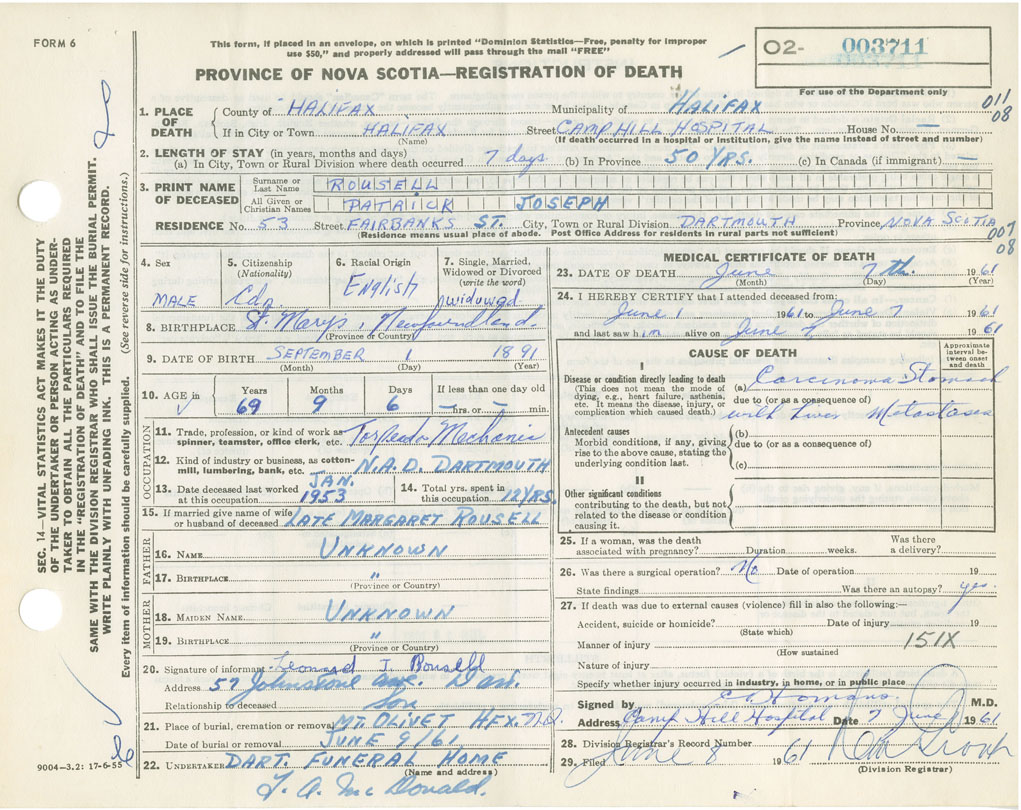 FORM 6
This form, if placed in an envelope, on which is printed "Dominion Statistics—Free, penalty for improper
use $50," and properly addressed will pass through the mail "FREE"
PROVINCE OF NOVA SCOTIA—REGISTRATION OF DEATH
02- 003711
For use of the Department only
011
08
1. PLACE OF DEATH
County of HALIFAX Municipality of HALIFAX
If in City or Town HALIFAX Street CAMP HILL HOSPITAL House No. —
(Name) (If death occurred in a hospital or institution, give the name instead of street and number)
2. LENGTH OF STAY (in years, months and days)
(a) In City, Town or Rural Division where death occurred 7 days (b) In Province 50 YRS. (c) In Canada (if immigrant) —
3. PRINT NAME OF DECEASED
Surname or Last Name ROUSELL
All Given or Christian Names PATRICK JOSEPH
RESIDENCE No. 53 Street FAIRBANKS ST. City, Town or Rural Division DARTMOUTH Province NOVA SCOTIA
(Residence means usual place of abode. Post Office Address for residents in rural parts not sufficient)
007
08
4. Sex MALE
5. Citizenship (Nationality) Cdn.
6. Racial Origin English
7. Single, Married, Widowed or Divorced (write the word) widowed
8. BIRTHPLACE St. Marys, Newfoundland.
(Province or Country)
9. DATE OF BIRTH SEPTEMBER 1 1891
(Month) (Day) (Year)
10. AGE in Years 69 Months 9 Days 6 If less than one day old — hrs. or — min.
OCCUPATION
11. Trade, profession, or kind of work as spinner, teamster, office clerk, etc. Torpedo Mechanic
12. Kind of industry or business, as cotton-mill, lumbering, bank, etc. N.A.D. DARTMOUTH
13. Date deceased last worked at this occupation JAN. 1953
14. Total yrs. spent in this occupation 12 YRS.
15. If married give name of wife or husband of deceased LATE MARGARET ROUSELL
FATHER
16. NAME UNKNOWN
17. BIRTHPLACE "
(Province or Country)
MOTHER
18. MAIDEN NAME UNKNOWN
19. BIRTHPLACE "
(Province or Country)
20. Signature of informant Leonard J. Rousell
Address 57 Johnstone Ave. Dart.
Relationship to deceased Son
21. Place of burial, cremation or removal MT. OLIVET HFX. N.S.
Date of burial or removal JUNE 9/61
22. UNDERTAKER DART. FUNERAL HOME
(Name and address)
T. A. McDonald.
9004—3.2: 17-6-55
MEDICAL CERTIFICATE OF DEATH
23. DATE OF DEATH June 7th. 1961
(Month) (Day) (Year)
24. I HEREBY CERTIFY that I attended deceased from:
June 1 1961 to June 7 1961
and last saw him alive on June 7 1961
CAUSE OF DEATH
Approximate interval between onset and death
I
Disease or condition directly leading to death
(This does not mean the mode of dying, e.g., heart failure, asthenia, etc. It means the disease, injury, or complication which caused death.)
(a) Carcinoma Stomach
due to (or as a consequence of)
with Liver Metastases
Antecedent causes
Morbid conditions, if any, giving rise to the above cause, stating the underlying condition last.
(b)
due to (or as a consequence of)
(c)
II
Other significant conditions
contributing to the death, but not related to the disease or condition causing it.
25. If a woman, was the death associated with pregnancy? Duration weeks. Was there a delivery?
26. Was there a surgical operation? No Date of operation 19
State findings Was there an autopsy? yes.
27. If death was due to external causes (violence) fill in also the following:—
Accident, suicide or homicide? Date of injury 19
(State which)
Manner of injury 151X
(How sustained
Nature of injury
Specify whether injury occurred in industry, in home, or in public place
Signed by M.D.
Address Camp Hill Hospital Date 7 June 1961
28. Division Registrar's Record Number
29. Filed June 8 1961
(Division Registrar)
SEC. 14—VITAL STATISTICS ACT MAKES IT THE DUTY
OF THE UNDERTAKER OR PERSON ACTING AS UNDER-
TAKER TO OBTAIN ALL THE PARTICULARS REQUIRED
IN THE "REGISTRATION OF DEATH" AND TO FILE THE
SAME WITH THE DIVISION REGISTRAR WHO SHALL ISSUE THE BURIAL PERMIT.
WRITE PLAINLY WITH UNFADING INK. THIS IS A PERMANENT RECORD.
Every item of information should be carefully supplied. (See reverse side for instructions.)